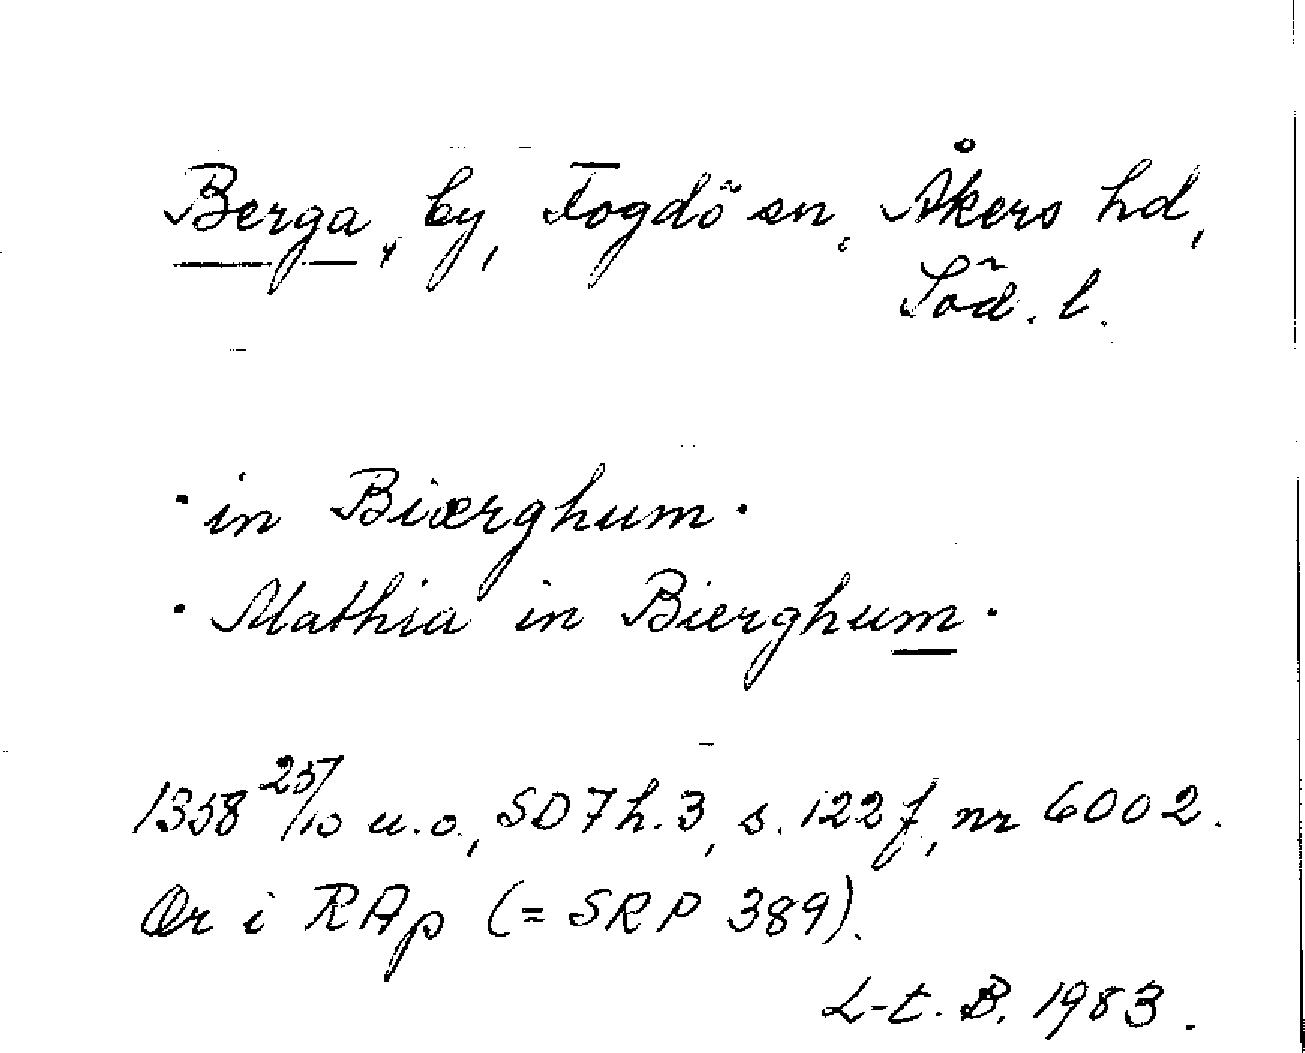 Berga, by, Fogdö sn, Åkers hd,
Söd. l.
· in Biærghum ·
· Mathia in Bierghum ·
1358 25/10 u.o., SD 7 h. 3, s. 122 f, nr 6002.
Or i RAp (= SRP 389).
L-t. B. 1983.